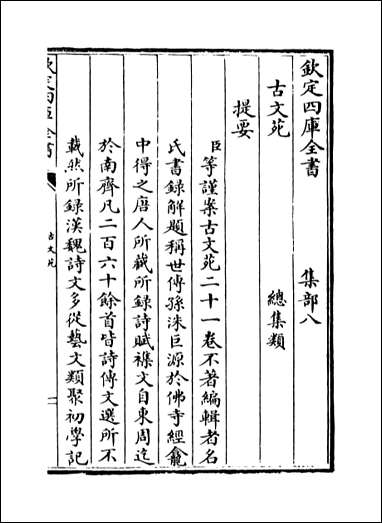 欽定四庫全書 集部八
古文苑 總集類
提要
臣等謹案古文苑二十一卷不著編輯者名
氏書錄解題稱世傳孫洙巨源於佛寺經龕
中得之唐人所藏所錄詩賦襍文自東周迄
於南齊凡二百六十餘首皆詩傳文選所不
載然所錄漢魏詩文多從藝文類聚初學記
欽定四庫全書
古文苑